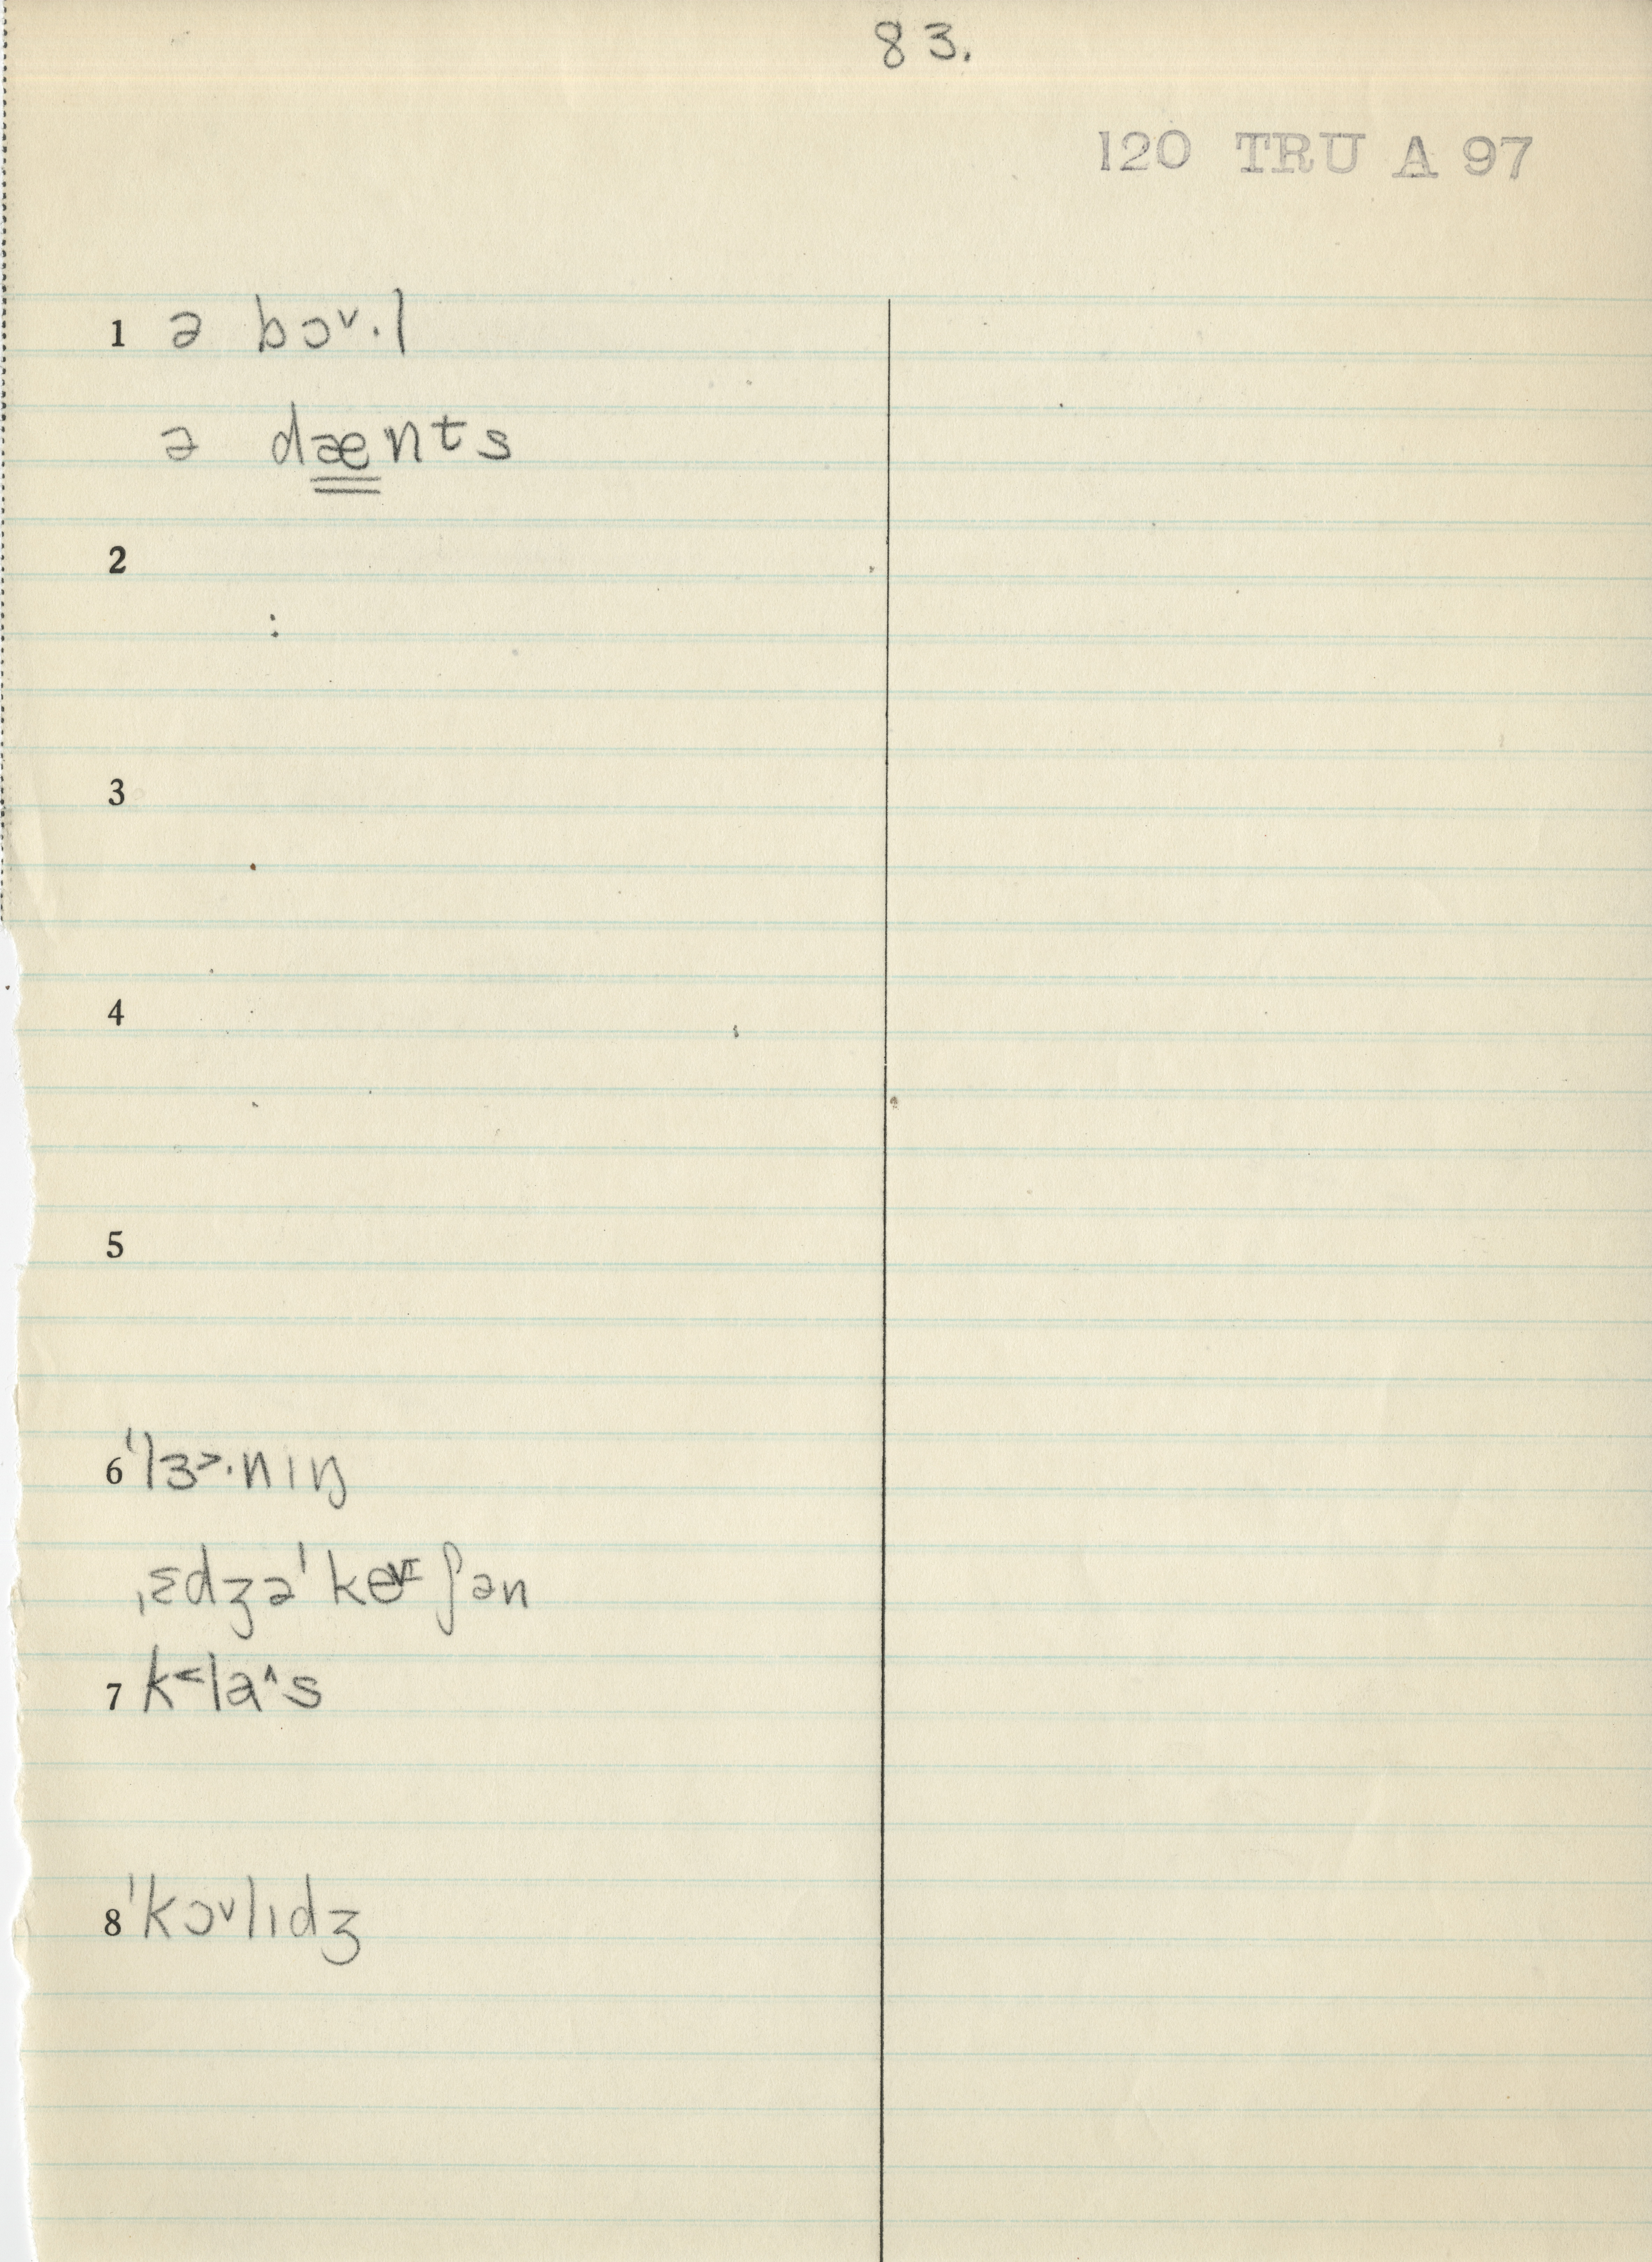 83.
120 TRU A 97
1 ə bɔ˅·l
ə dænts
2
3
4
5
6 ˈlɜ˃·nɪŋ
ˌɛdʒəˈke˅ɪʃən
7 k˂la˄s
8 ˈkɔ˅lɪdʒ